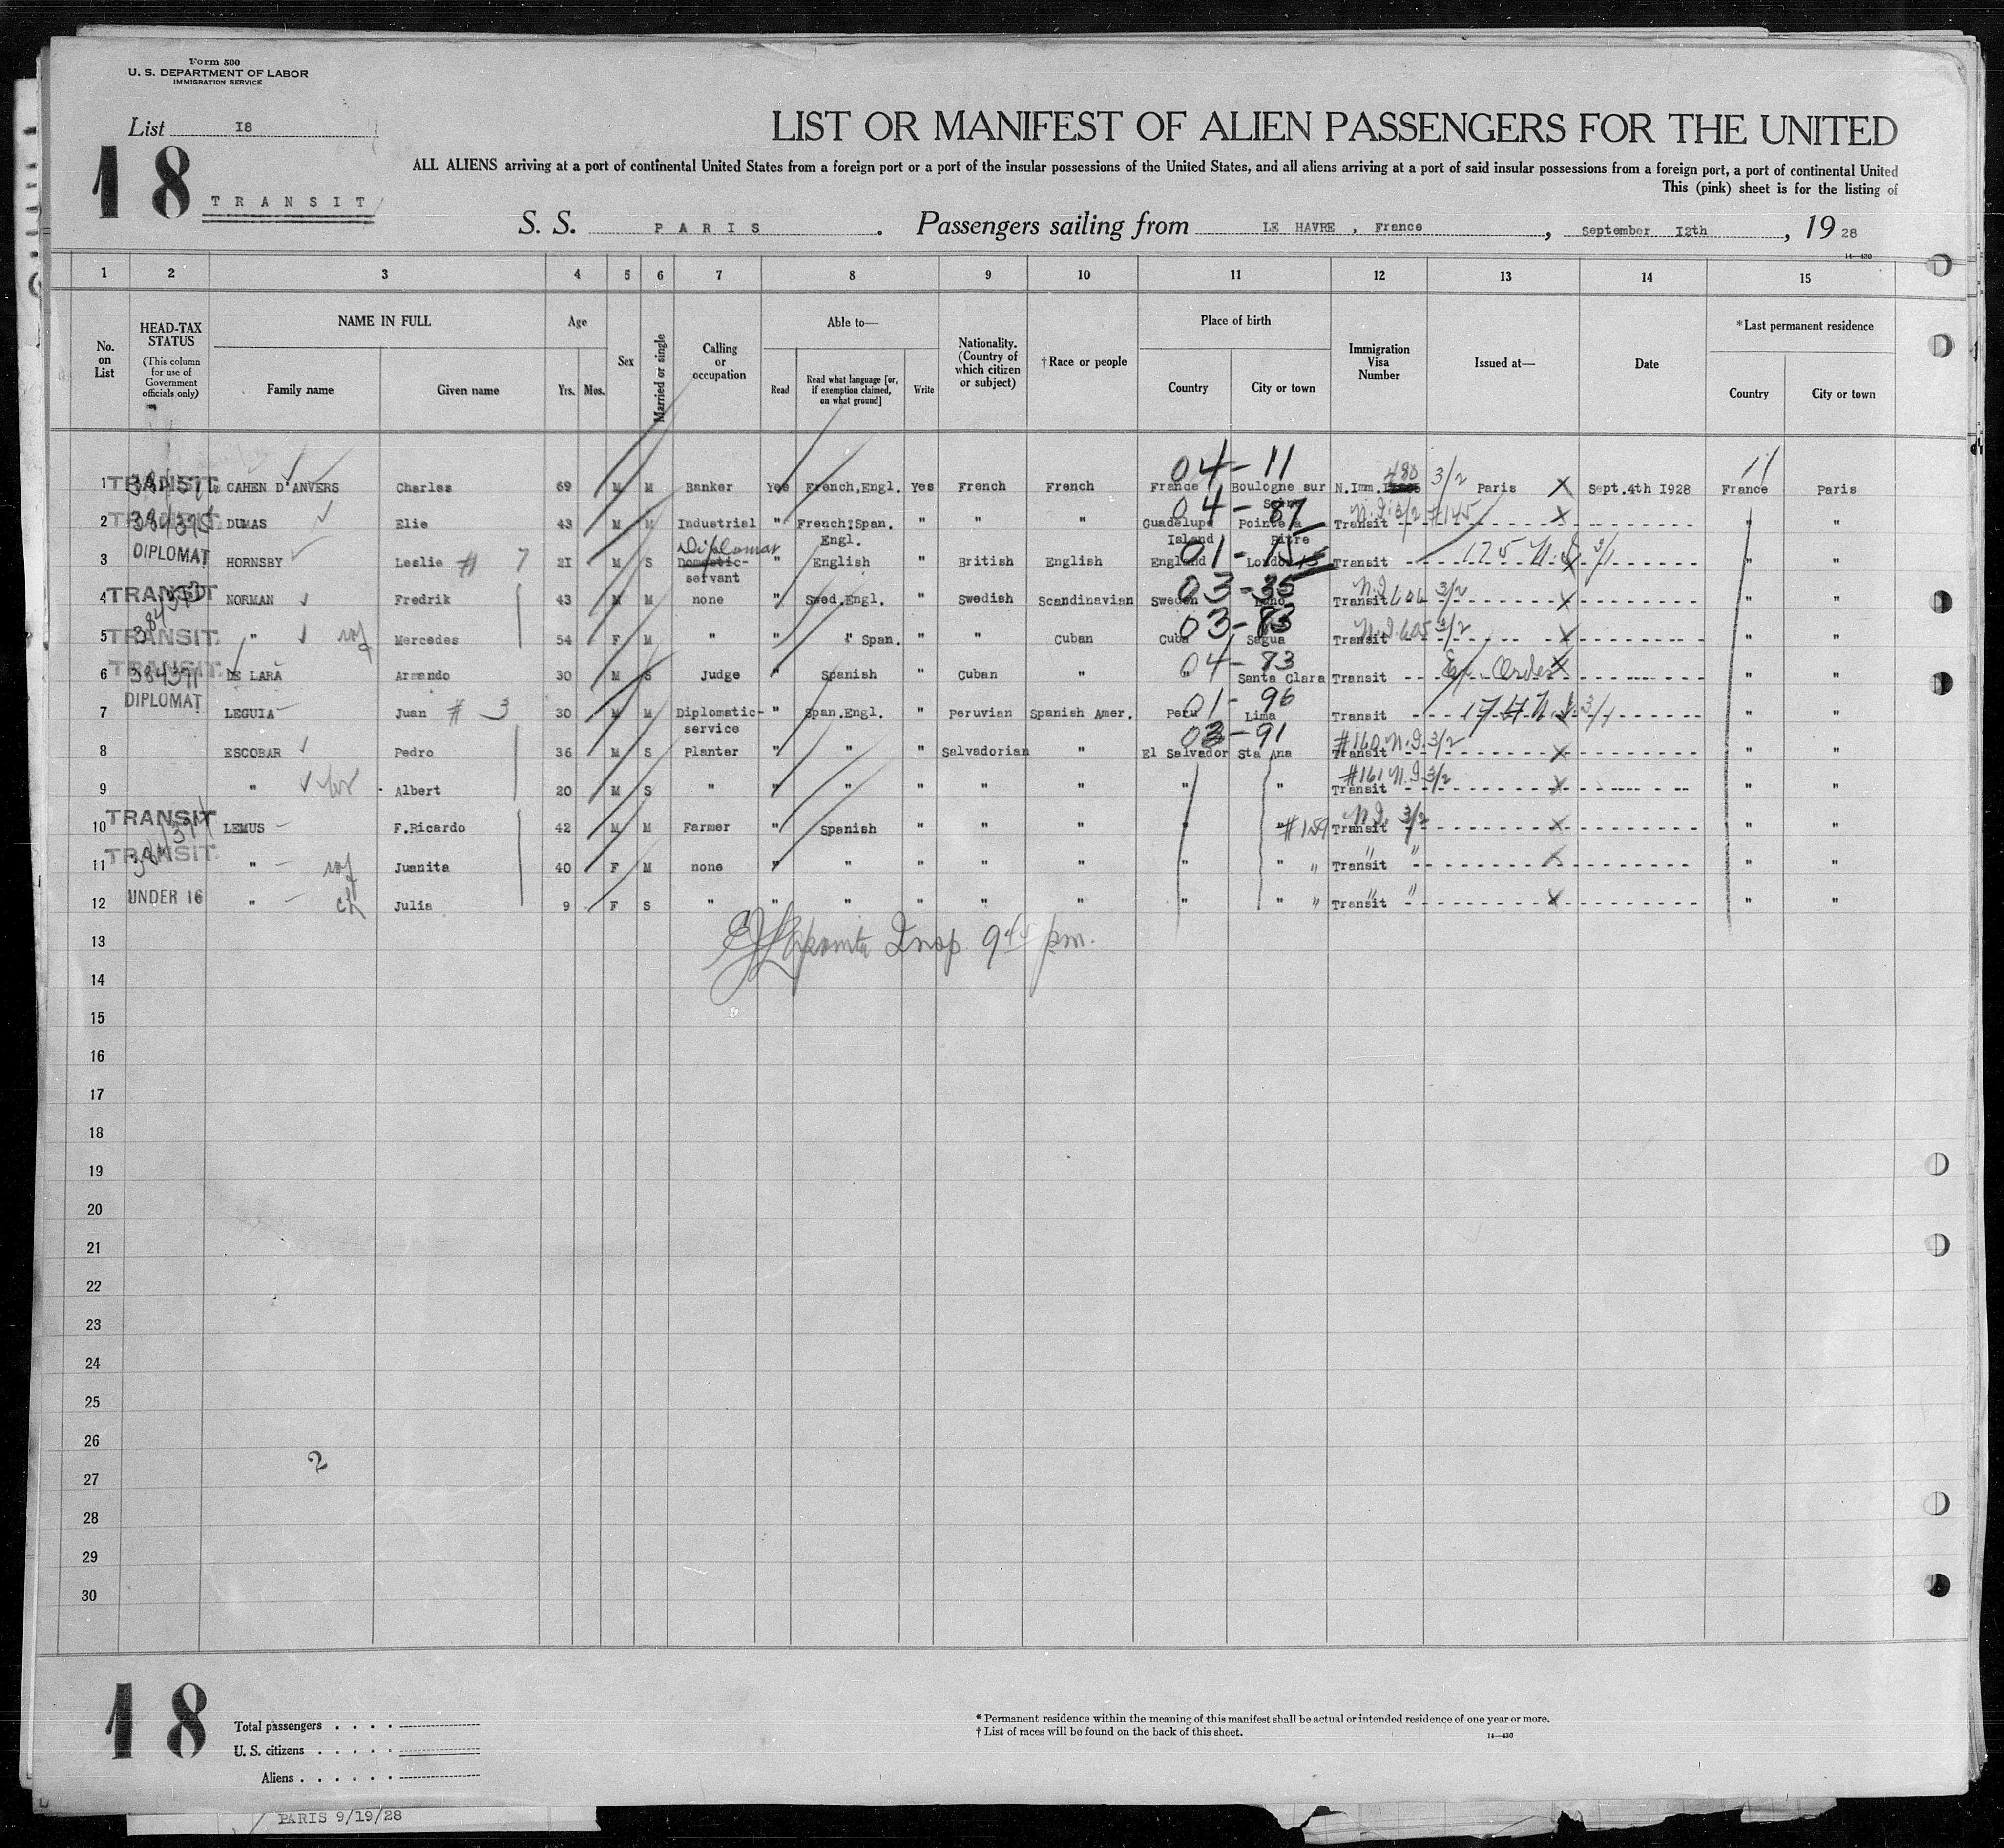 Form 500
U. S. DEPARTMENT OF LABOR
IMMIGRATION SERVICE
List I8
LIST OR MANIFEST OF ALIEN PASSENGERS FOR THE UNITED
18
TRANSIT
ALL ALIENS arriving at a port of continental United States from a foreign port or a port of the insular possessions of the United States, and all aliens arriving at a port of said insular possessions from a foreign port, a port of continental United
This (pink) sheet is for the listing of
S. S. PARIS . Passengers sailing from LE HAVRE , France , September I2th , 19 28
14—430
1 2 3 4 5 6 7 8 9 10 11 12 13 14 15
No. on List
HEAD-TAX STATUS (This column for use of Government officials only)
NAME IN FULL Family name Given name
Age Yrs. Mos.
Sex
Married or single
Calling or occupation
Able to— Read Read what language [or, if exemption claimed, on what ground] Write
Nationality. (Country of which citizen or subject)
†Race or people
Place of birth Country City or town
Immigration Visa Number
Issued at—
Date
*Last permanent residence Country City or town
04-11 480 3/2 11
1 TRANSIT CAHEN D'ANVERS Charles 69 M M Banker Yes French,Engl. Yes French French France Boulogne sur N.Imm. Paris X Sept.4th I928 France Paris
04-87 N.I. 3/2
2 TRANSIT DUMAS Elie 43 M M Industrial " French,Span. Engl. " " " Guadelupe Island Pointe a Pitre Transit X " "
3 DIPLOMAT HORNSBY Leslie # 7 2I M S Diplomat Domestic-servant " English " British English England London 01-15 Transit 175 N.I. 3/1 " "
4 TRANSIT NORMAN Fredrik 43 M M none " Swed.Engl. " Swedish Scandinavian Sweden 03-35 Transit N.I. 604 3/2 X " "
5 TRANSIT " wf Mercedes 54 F M " " " Span. " " Cuban Cuba Sagua 03-83 Transit N.I. 605 3/2 X " "
6 TRANSIT 384391 DE LARA Armando 30 M S Judge " Spanish " Cuban " Santa Clara 04-83 Transit Ex. Order X " "
7 DIPLOMAT LEGUIA Juan # 3 30 M M Diplomatic-service " Span.Engl. " Peruvian Spanish Amer. Peru Lima 01-96 Transit 174 N.I. 3/1 " "
8 ESCOBAR Pedro 36 M S Planter " " " Salvadorian " El Salvador Sta Ana 03-91 Transit #160 N.I. 3/2 X " "
9 " Albert 20 M S " " " " " " " " Transit #161 N.I. 3/2 X " "
10 TRANSIT LEMUS F.Ricardo 42 M M Farmer " Spanish " " " " " #159 Transit N.I. 3/2 X " "
11 TRANSIT " wf Juanita 40 F M none " " " " " " " " Transit " " X " "
12 UNDER 16 " ch Julia 9 F S " " " " " " " " " Transit " " X " "
13 Insp. 9 45 pm.
14
15
16
17
18
19
20
21
22
23
24
25
26
2
27
28
29
30
18
Total passengers
U. S. citizens
Aliens
* Permanent residence within the meaning of this manifest shall be actual or intended residence of one year or more.
† List of races will be found on the back of this sheet.
14—430
PARIS 9/19/28